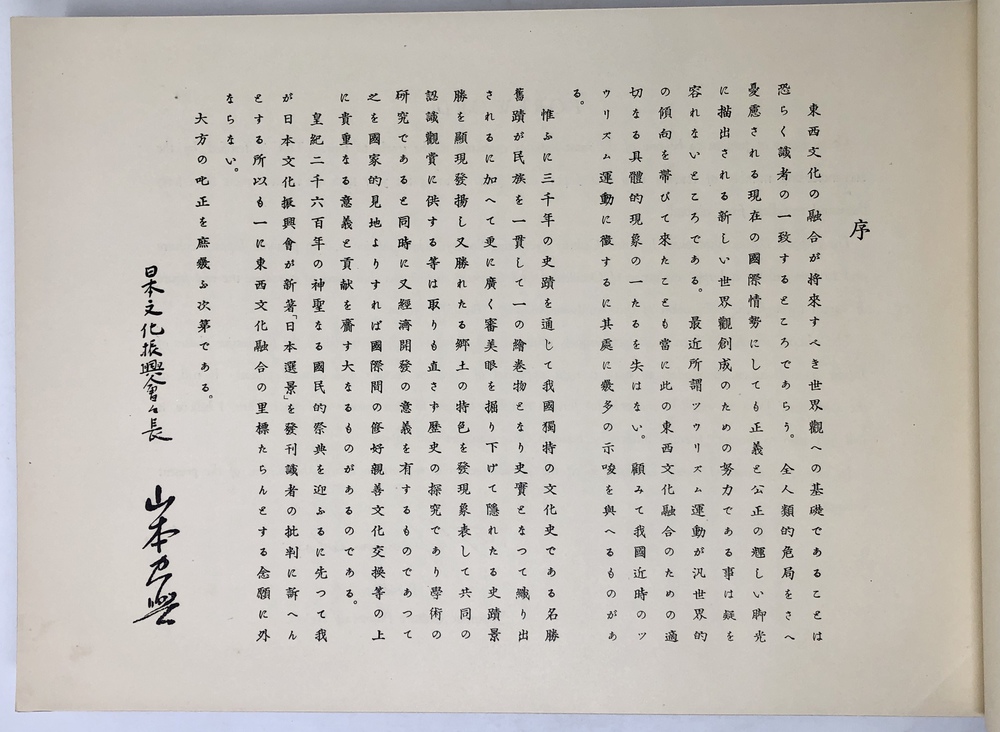 序
東西文化の融合が將來すべき世界觀への基礎であることは
恐らく識者の一致するところであらう。全人類的危局をさへ
憂慮される現在の國際情勢にしても正義と公正の輝しい脚光
に描出される新しい世界觀創成のための努力である事は疑を
容れないところである。最近所謂ツウリズム運動が汎世界的
の傾向を帶びて來たことも當に此の東西文化融合のための適
切なる具體的現象の一たるを失はない。顧みて我國近時のツ
ウリズム運動に徵するに其處に幾多の示唆を與へるものがあ
る。
惟ふに三千年の史蹟を通じて我國獨特の文化史である名勝
舊蹟が民族を一貫して一の繪卷物となり史實となつて織り出
されるに加へて更に廣く審美眼を掘り下げて隱れたる史蹟景
勝を顯現發揚し又勝れたる鄉土の特色を發現象表して共同の
認識觀賞に供する等は取りも直さず歷史の探究であり學術の
研究であると同時に又經濟開發の意義を有するものであつて
之を國家的見地よりすれば國際間の修好親善文化交換等の上
に貴重なる意義と貢献を齎す大なるものがあるのである。
皇紀二千六百年の神聖なる國民的祭典を迎ふるに先つて我
が日本文化振興會が新著「日本選景」を發刊識者の批判に訴へん
とする所以も一に東西文化融合の里標たらんとする念願に外
ならない。
大方の叱正を庶幾ふ次第である。
日本文化振興會々長
山本